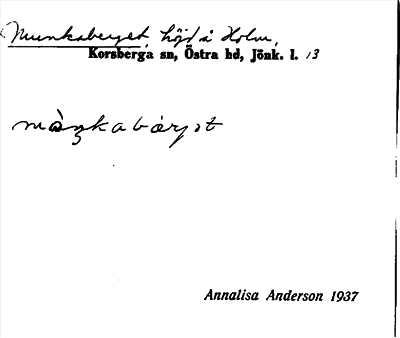 Munkaberget, höjd å Holm,
Korsberga sn, Östra hd, Jönk. l. 13
Annalisa Anderson 1937